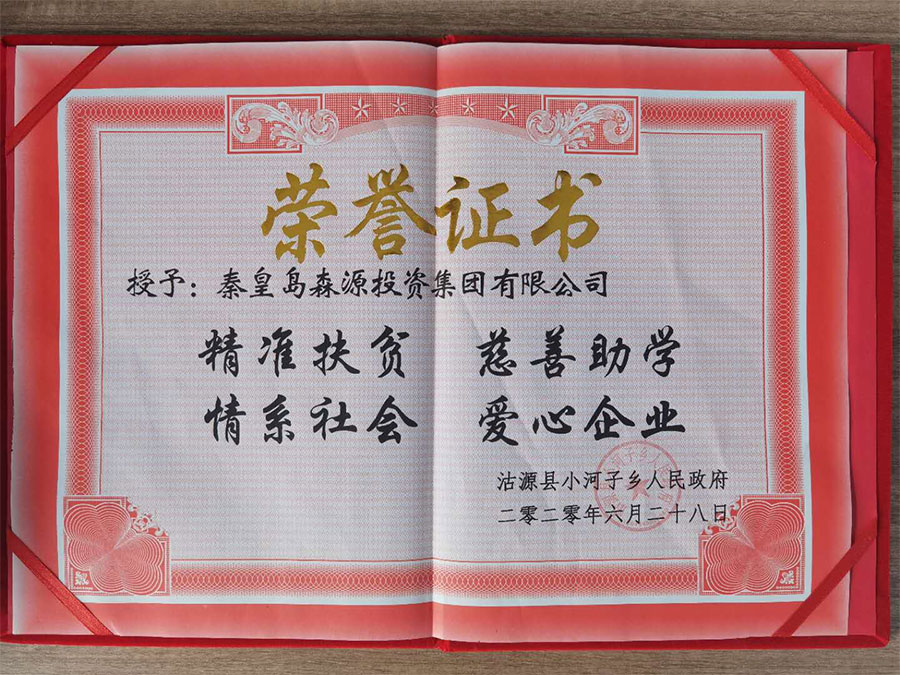 荣誉证书
授予：秦皇岛森源投资集团有限公司
精准扶贫 慈善助学
情系社会 爱心企业
沽源县小河子乡人民政府
二零二零年六月二十八日